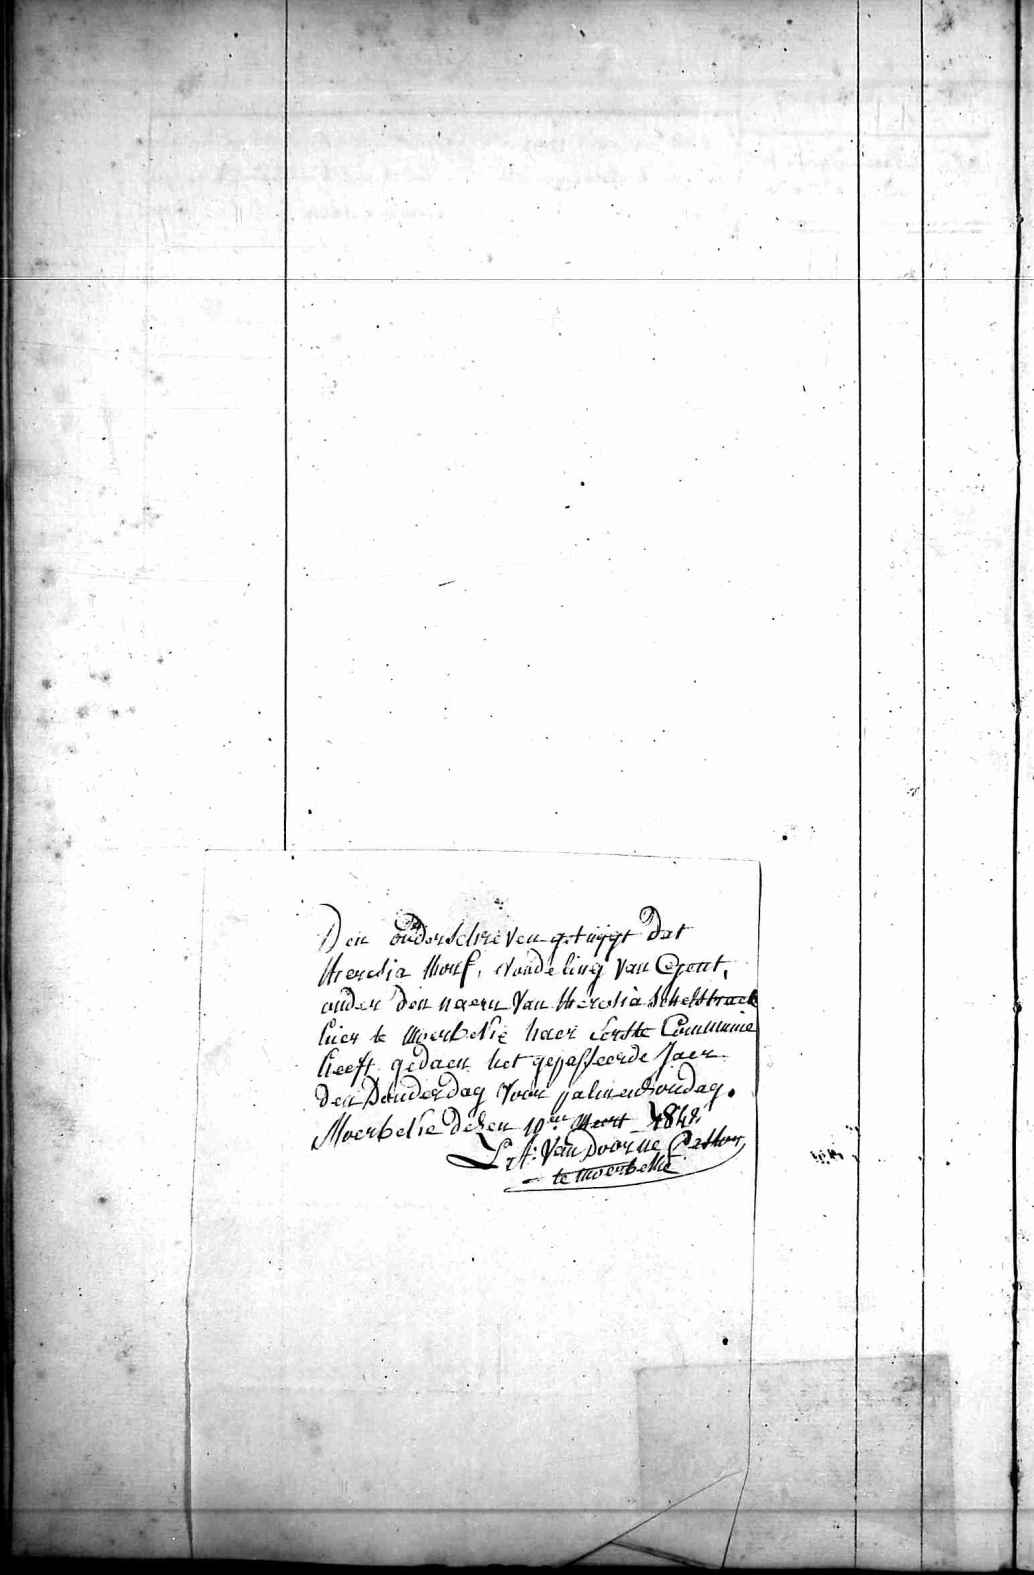 Den onderschreven getuygt dat
Theresia Monf, vondeling van Gent,
onder den naem van Theresia Schelstraete
hier te Moerbeke haer eerste Communie
heeft gedaen het gepasseerde Jaer
den Donderdag voor palmenzondag.
Moerbeke dezen 19en Meert 1848.
L: A: Van Doorne Pastor
te Moerbeke